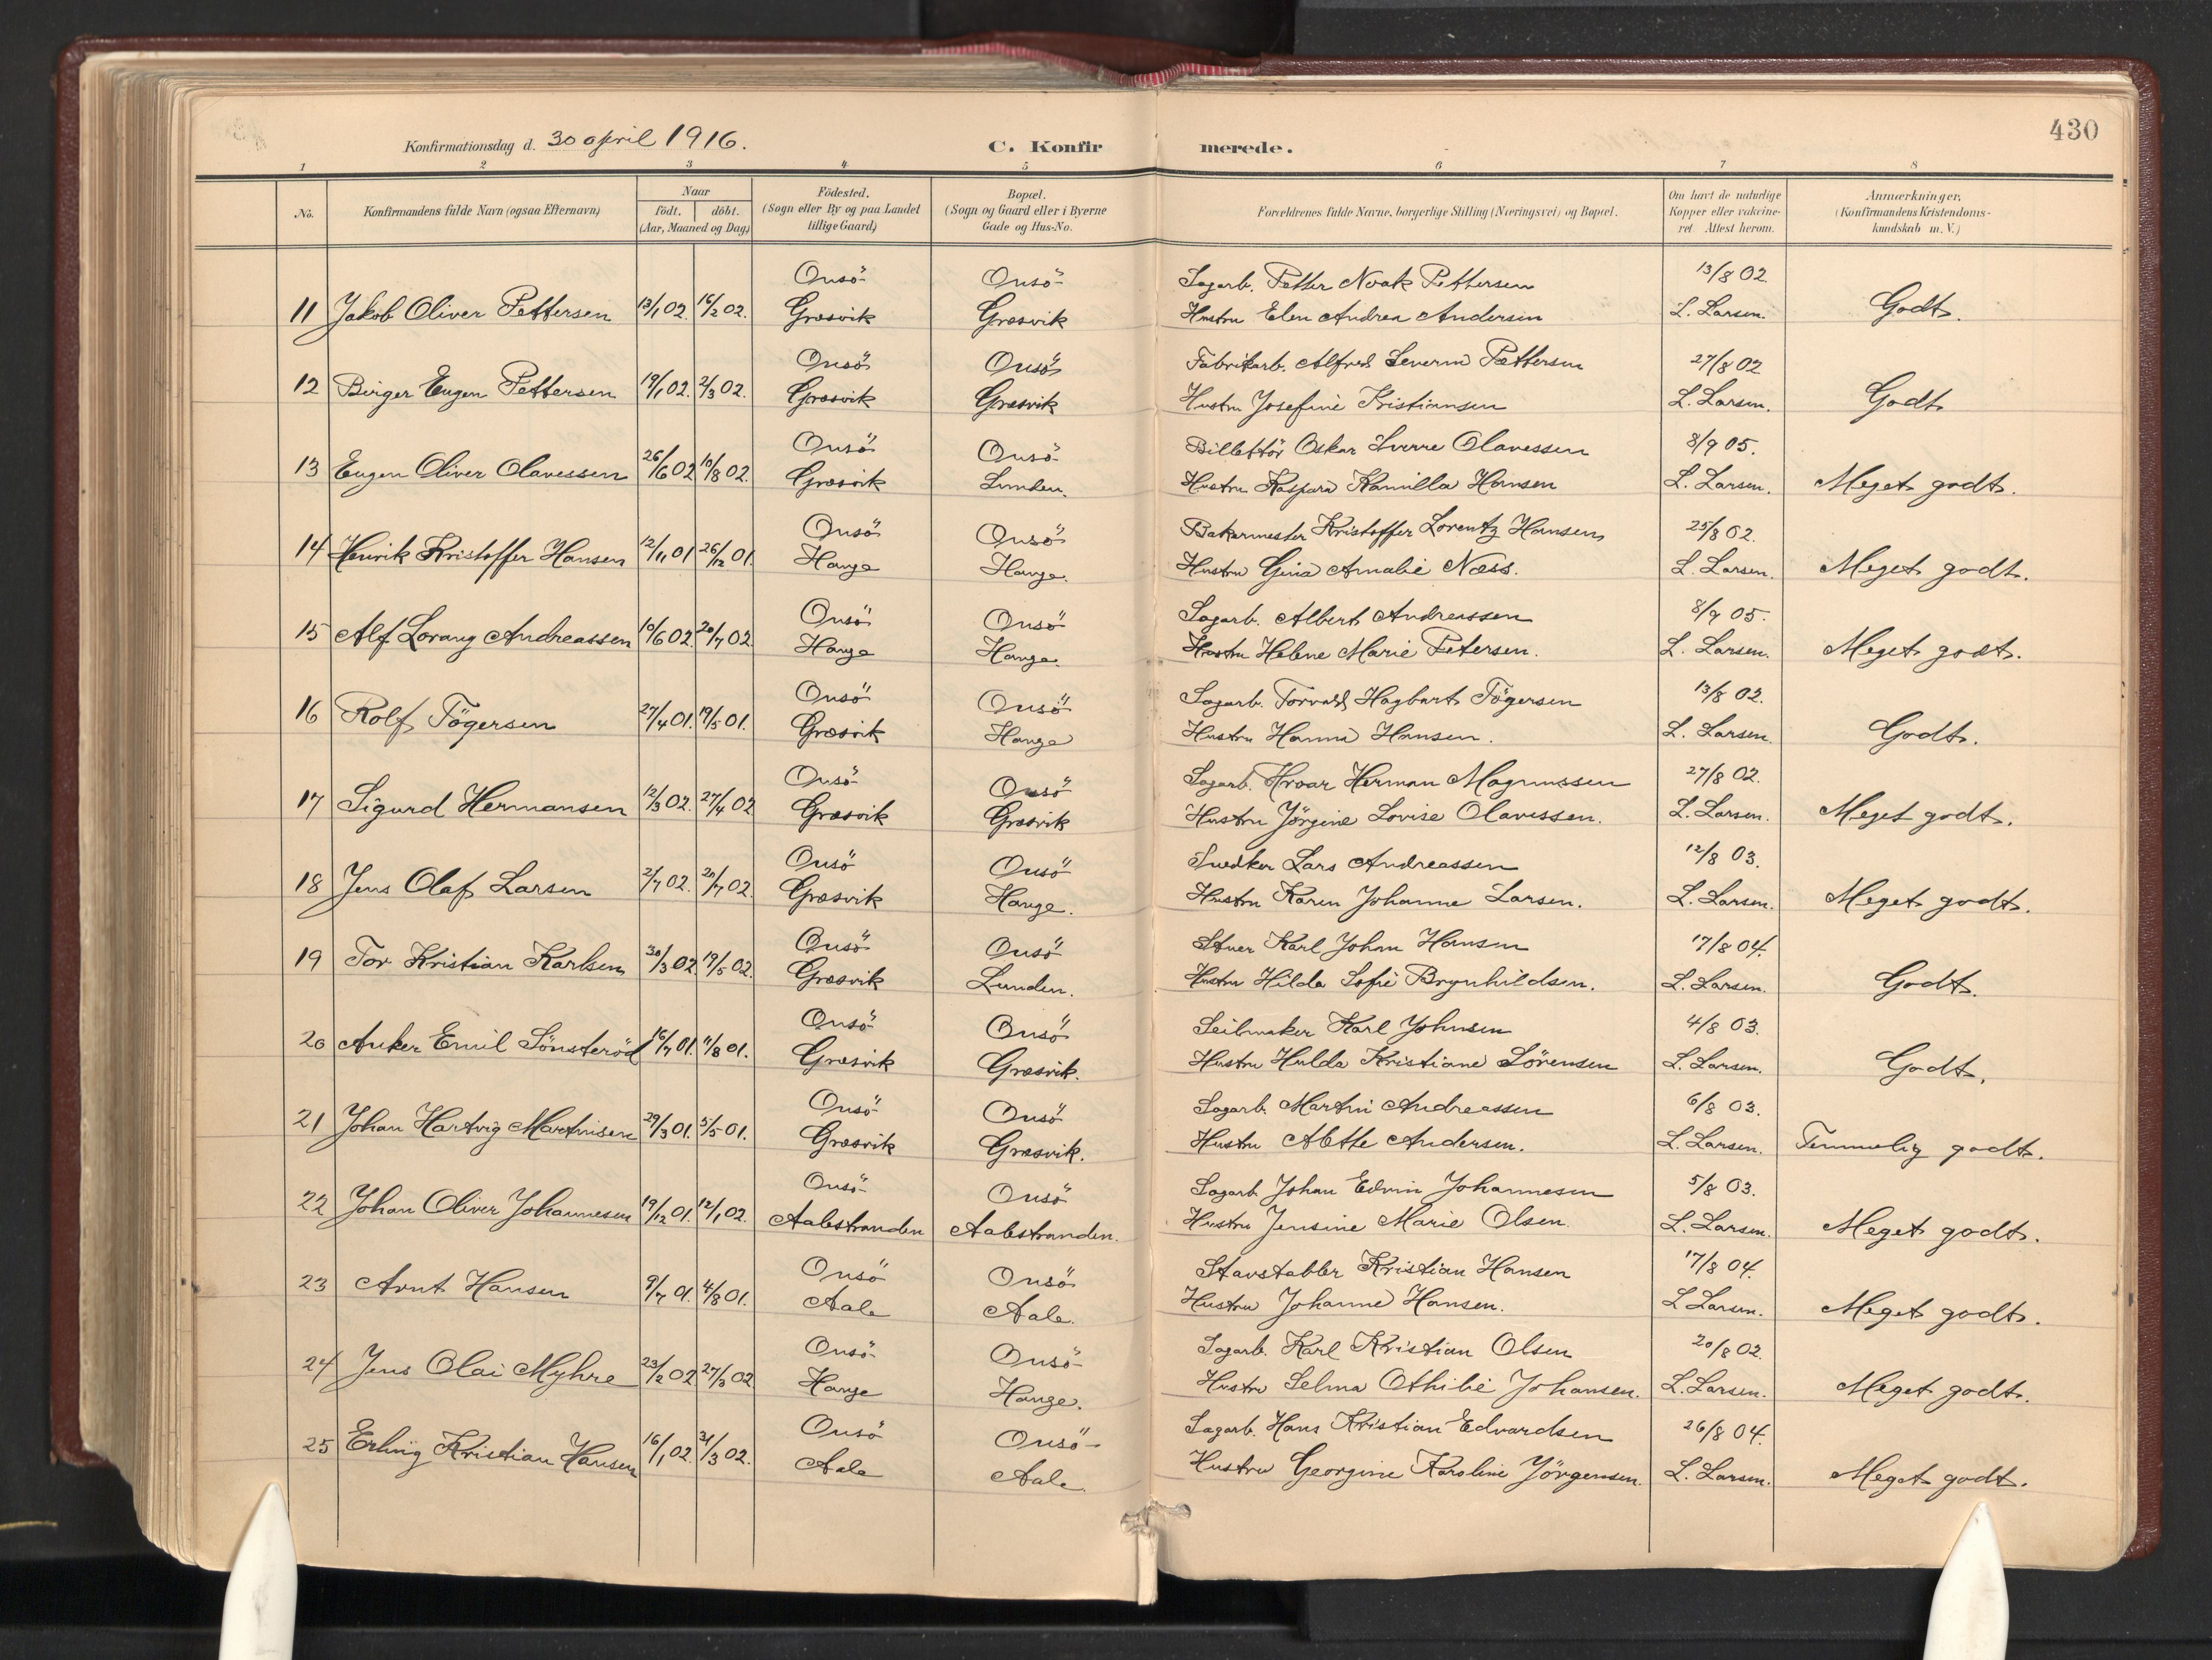 Konfirmationsdag d. 30 april 1916.
C. Konfir merede.
430
1 2 3 4 5 6 7 8
No.
Konfirmandens fulde Navn (ogsaa Efternavn)
Naar
födt. döbt.
(Aar, Maaned og Dag)
Födested.
(Sogn eller By og paa Landet
tillige Gaard)
Bopæl.
(Sogn og Gaard eller i Byerne
Gade og Hus-No.
Forældrenes fulde Navne, borgerlige Stilling (Næringsvei) og Bopæl.
Om havt de naturlige
Kopper eller vakcine-
ret. Attest herom.
Anmærkninger,
(Konfirmandens Kristendoms-
kundskab m. V.)
Onsö Onsö Sagarb. Petter Noak Pettersen 13/8 02
11 Jakob Oliver Pettersen 13/1 02. 16/2 02. Græsvik Græsvik Hustru Elen Andrea Andersen L. Larsen. Godt.
Onsö Onsö Fabrikarb. Alfred Severin Pettersen 27/8 02
12 Birger Eugen Pettersen 19/1 02. 2/3 02. Græsvik Græsvik Hustru Josefine Kristiansen L. Larsen. Godt
Onsö Onsö Billettör Oskar Sverre Olavessen 8/9 05.
13 Eugen Oliver Olavessen 26/6 02 10/8 02. Græsvik Lunden. Hustru Kaspara Kamilla Hansen L. Larsen. Meget godt.
Onsö Onsö Bakermester Kristoffer Lorentz Hansen 25/8 02.
14 Henrik Kristoffer Hansen 12/11 01 26/12 01. Hauge Hauge. Hustru Gina Amalie Næss. L. Larsen. Meget godt.
Onsö Onsö Sagarb. Albert Andreassen 8/9 05.
15 Alf Lorang Andreassen 10/6 02. 20/7 02 Hauge Hauge. Hustru Helene Marie Petersen. L. Larsen. Meget godt.
Onsö Onsö Sagarb. Torvald Hagbart Tögersen 13/8 02.
16 Rolf Tögersen 27/4 01. 19/5 01. Græsvik Hauge Hustru Hanna Hansen. L. Larsen. Godt.
Onsö Onsö Sagarb. Hroar Herman Magnussen 27/8 02.
17 Sigurd Hermansen 12/3 02. 27/4 02 Græsvik Græsvik Hustru Jörgine Lovise Olavessen. L. Larsen. Meget godt.
Onsö Onsö Snedker Lars Andreassen 12/8 03.
18 Jens Olaf Larsen 2/7 02. 20/7 02 Græsvik Hauge. Hustru Karen Johanne Larsen. L. Larsen. Meget godt.
Onsö Onsö Stuer Karl Johan Hansen 17/8 04.
19 Tor Kristian Karlsen 30/3 02. 19/5 02. Græsvik Lunden. Hustru Hilda Sofie Brynhildsen. L. Larsen. Godt.
Onsö Onsö Seilmaker Karl Johnsen 4/8 03.
20 Anker Emil Sönsteröd 16/7 01. 11/8 01. Græsvik Græsvik. Hustru Hulda Kristiane Sörensen L. Larsen. Godt.
Onsö Onsö Sagarb. Martin Andreassen 6/8 03.
21 Johan Hartvig Martinisen 29/3 01. 5/5 01. Græsvik Græsvik. Hustru Alette Andersen. L. Larsen. Temmelig godt.
Onsö Onsö Sagarb. Johan Edvin Johannesen 5/8 03.
22 Johan Oliver Johannesen 19/12 01. 12/1 02. Aalestranden Aalestranden. Hustru Jensine Marie Olsen. L. Larsen. Meget godt.
Onsö Onsö Stavstabler Kristian Hansen 17/8 04.
23 Arnt Hansen 9/7 01. 4/8 01. Aale Aale. Hustru Johanne Hansen. L. Larsen. Meget godt.
Onsö Onsö Sagarb. Karl Kristian Olsen 20/8 02.
24 Jens Olai Myhre 23/2 02 27/3 02 Hauge Hauge. Hustru Selma Othilie Johansen. L. Larsen. Meget godt.
Onsö Onsö Sagarb. Hans Kristian Edvardsen 26/8 04.
25 Erling Kristian Hansen 16/1 02. 31/3 02. Aale Aale. Hustru Georgine Karoline Jörgensen. L. Larsen. Meget godt.